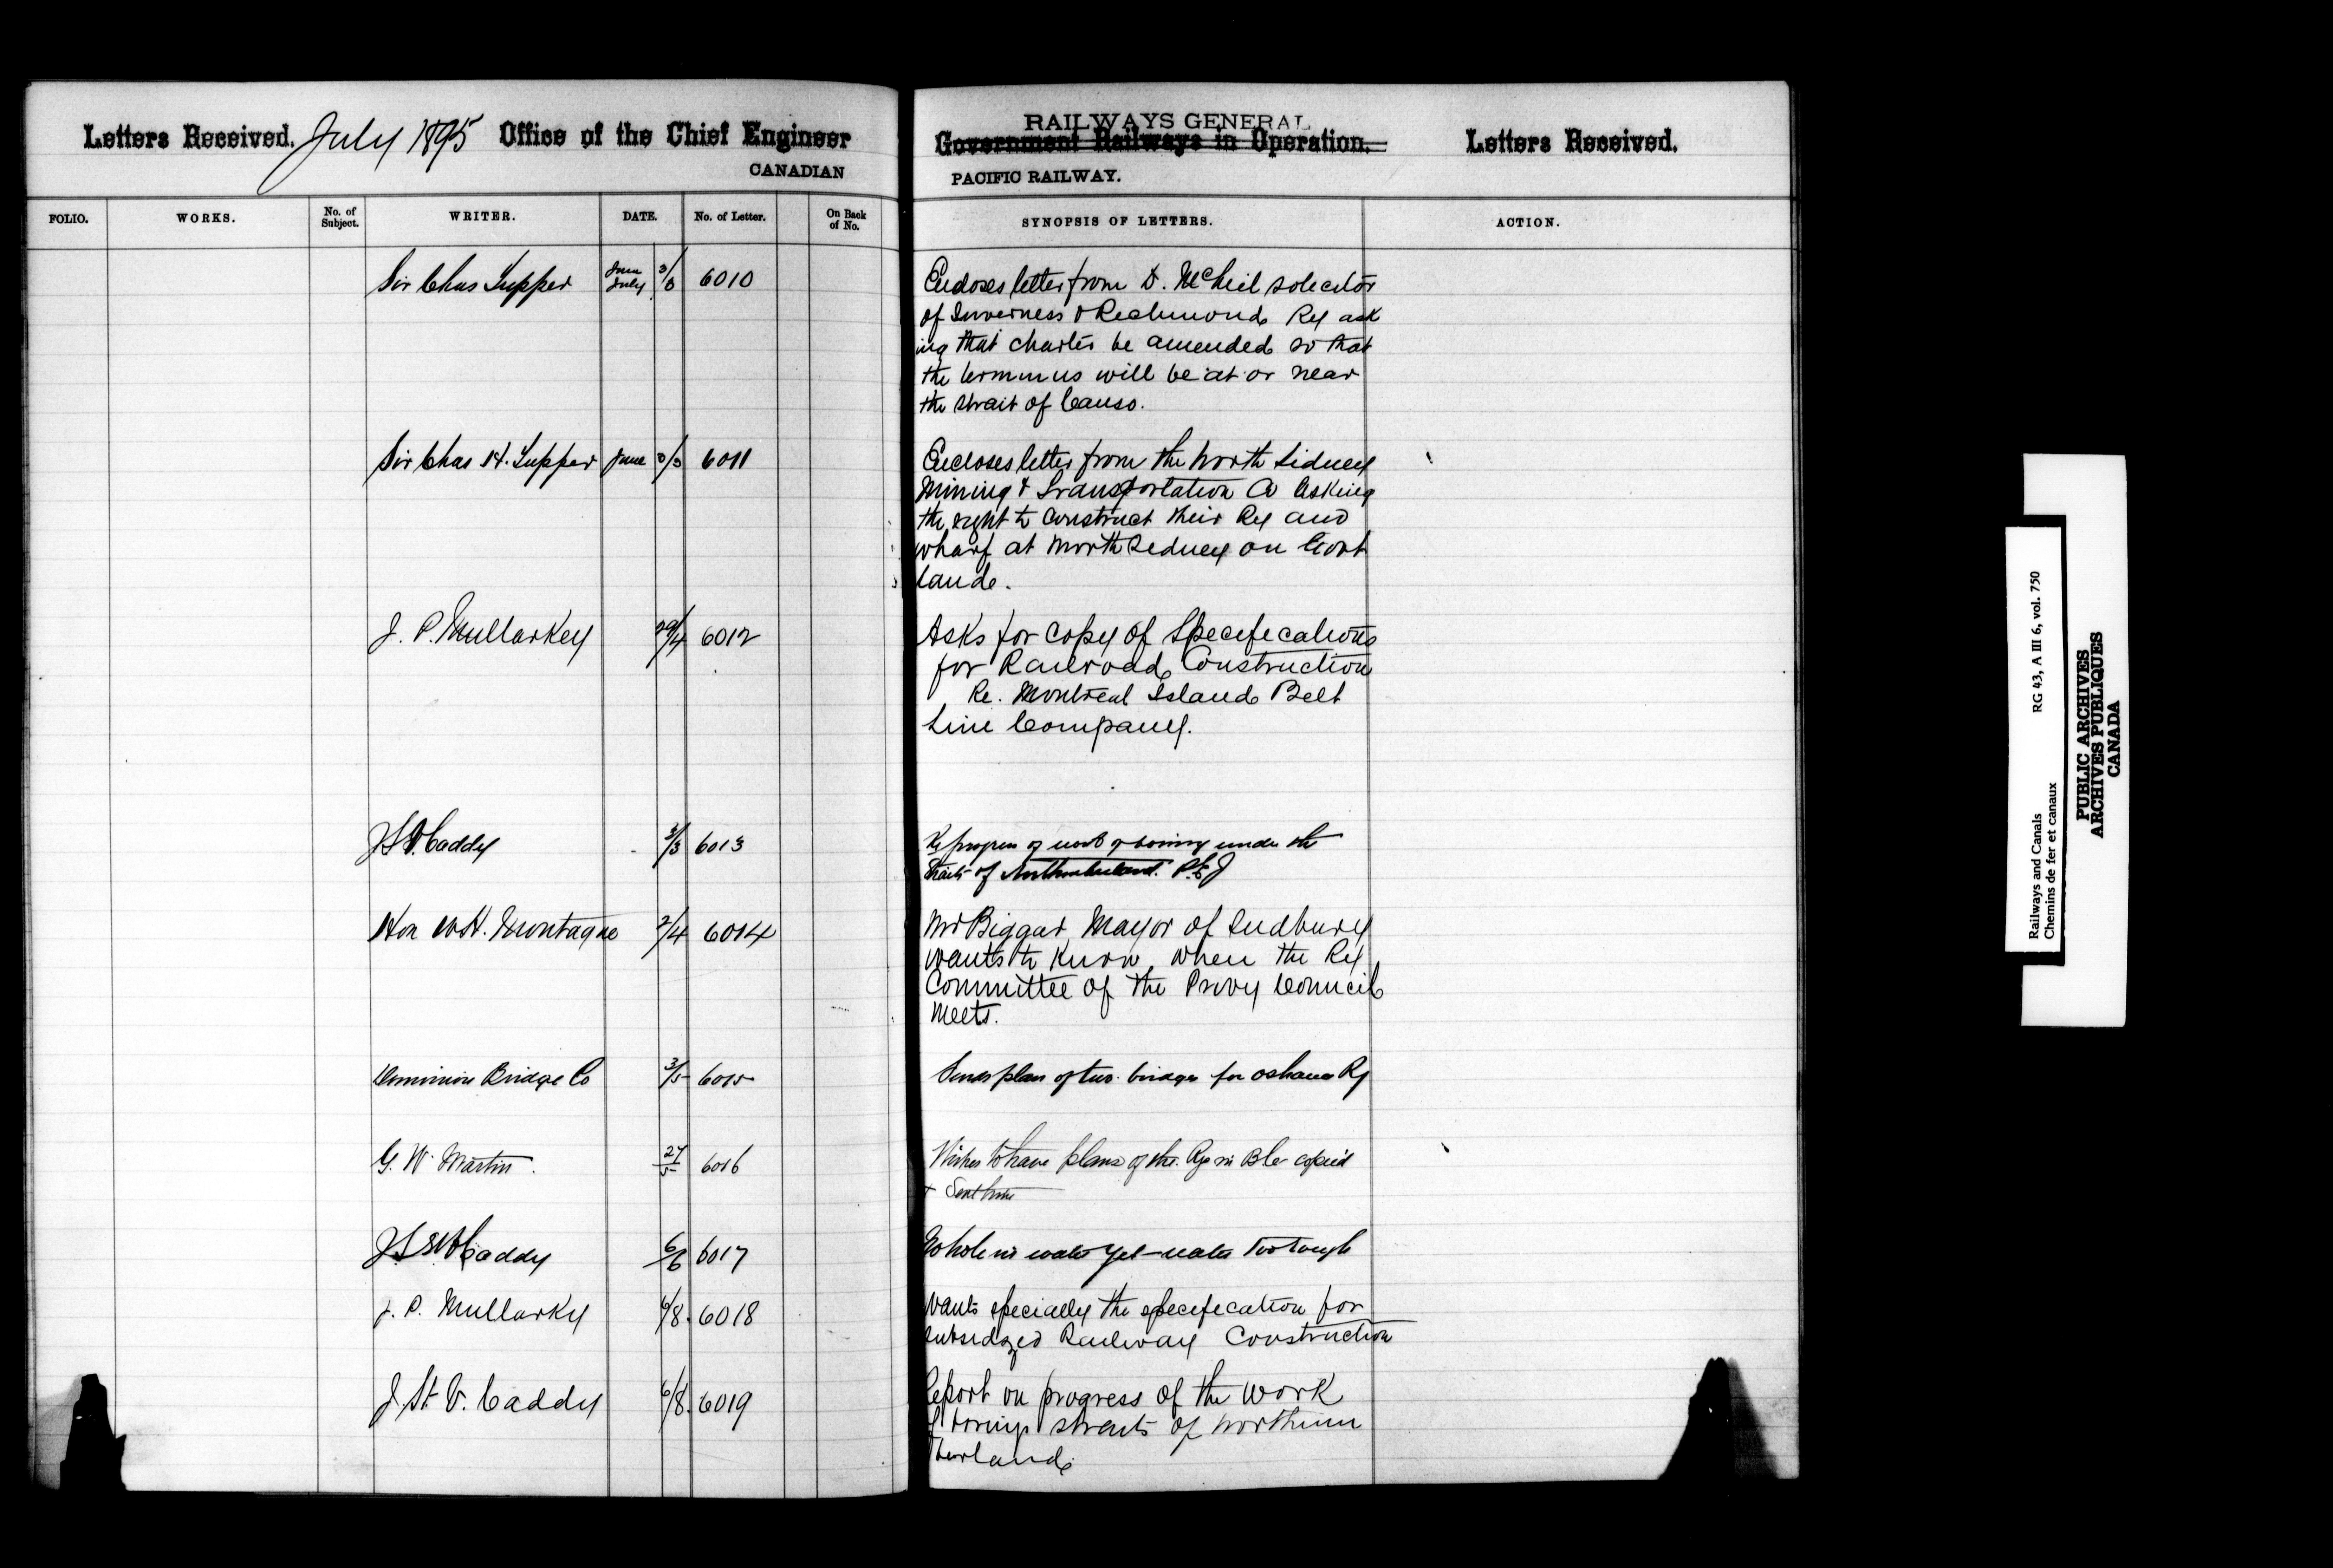 Letters Received. July 1895 Office of the Chief Engineer
CANADIAN
RAILWAYS GENERAL
Government Railways in Operation.
PACIFIC RAILWAY.
Letters Received.
FOLIO. WORKS. No. of Subject. WRITER. DATE. No. of Letter. On Back of No.
SYNOPSIS OF LETTERS. ACTION.
Sir Chas Tupper June July 3/3 6010
Encloses letter from D. McNeil solecitor
of Inverness & Richmond Ry ask
ing that charter be amended so that
the terminus will be at or near
the Strait of Canso.
Sir Chas H. Tupper June 3/3 6011
Encloses letter from the North Sidney
Mining & Transportation Co asking
the right to construct their Ry and
wharf at North Sidney on Govt
lands.
J. P. Mullarkey 29/4 6012
Asks for copy of Specifications
for Railroad Construction
Re. Montreal Island Belt
Line Company.
J St V. Caddy 3/3 6013
Re progress of work of boring under the
Straits of Northumberland. P.E.I
Hon W.H. Montague 2/4 6014
Mr Biggar Mayor of Sudbury
wants to know when the Ry
Committee of the Privy Council
meets.
Dominion Bridge Co 3/5 6015
Sends plan of two bridges for Oshawa Ry
G. W. Martin. 27/5 6016
Wishes to have plans of the Rys in B.C. copied
& sent him
J. St V Caddy 6/6 6017
No hole in water yet - water too rough
J. P. Mullarky 6/8. 6018
Wants specially the specification for
subsidized Railway Construction
J. St. V. Caddy 6/8. 6019
Report on progress of the work
of borings straits of Northum
berland.
Railways and Canals
Chemins de fer et canaux
RG 43, A III 6, vol. 750
PUBLIC ARCHIVES
ARCHIVES PUBLIQUES
CANADA